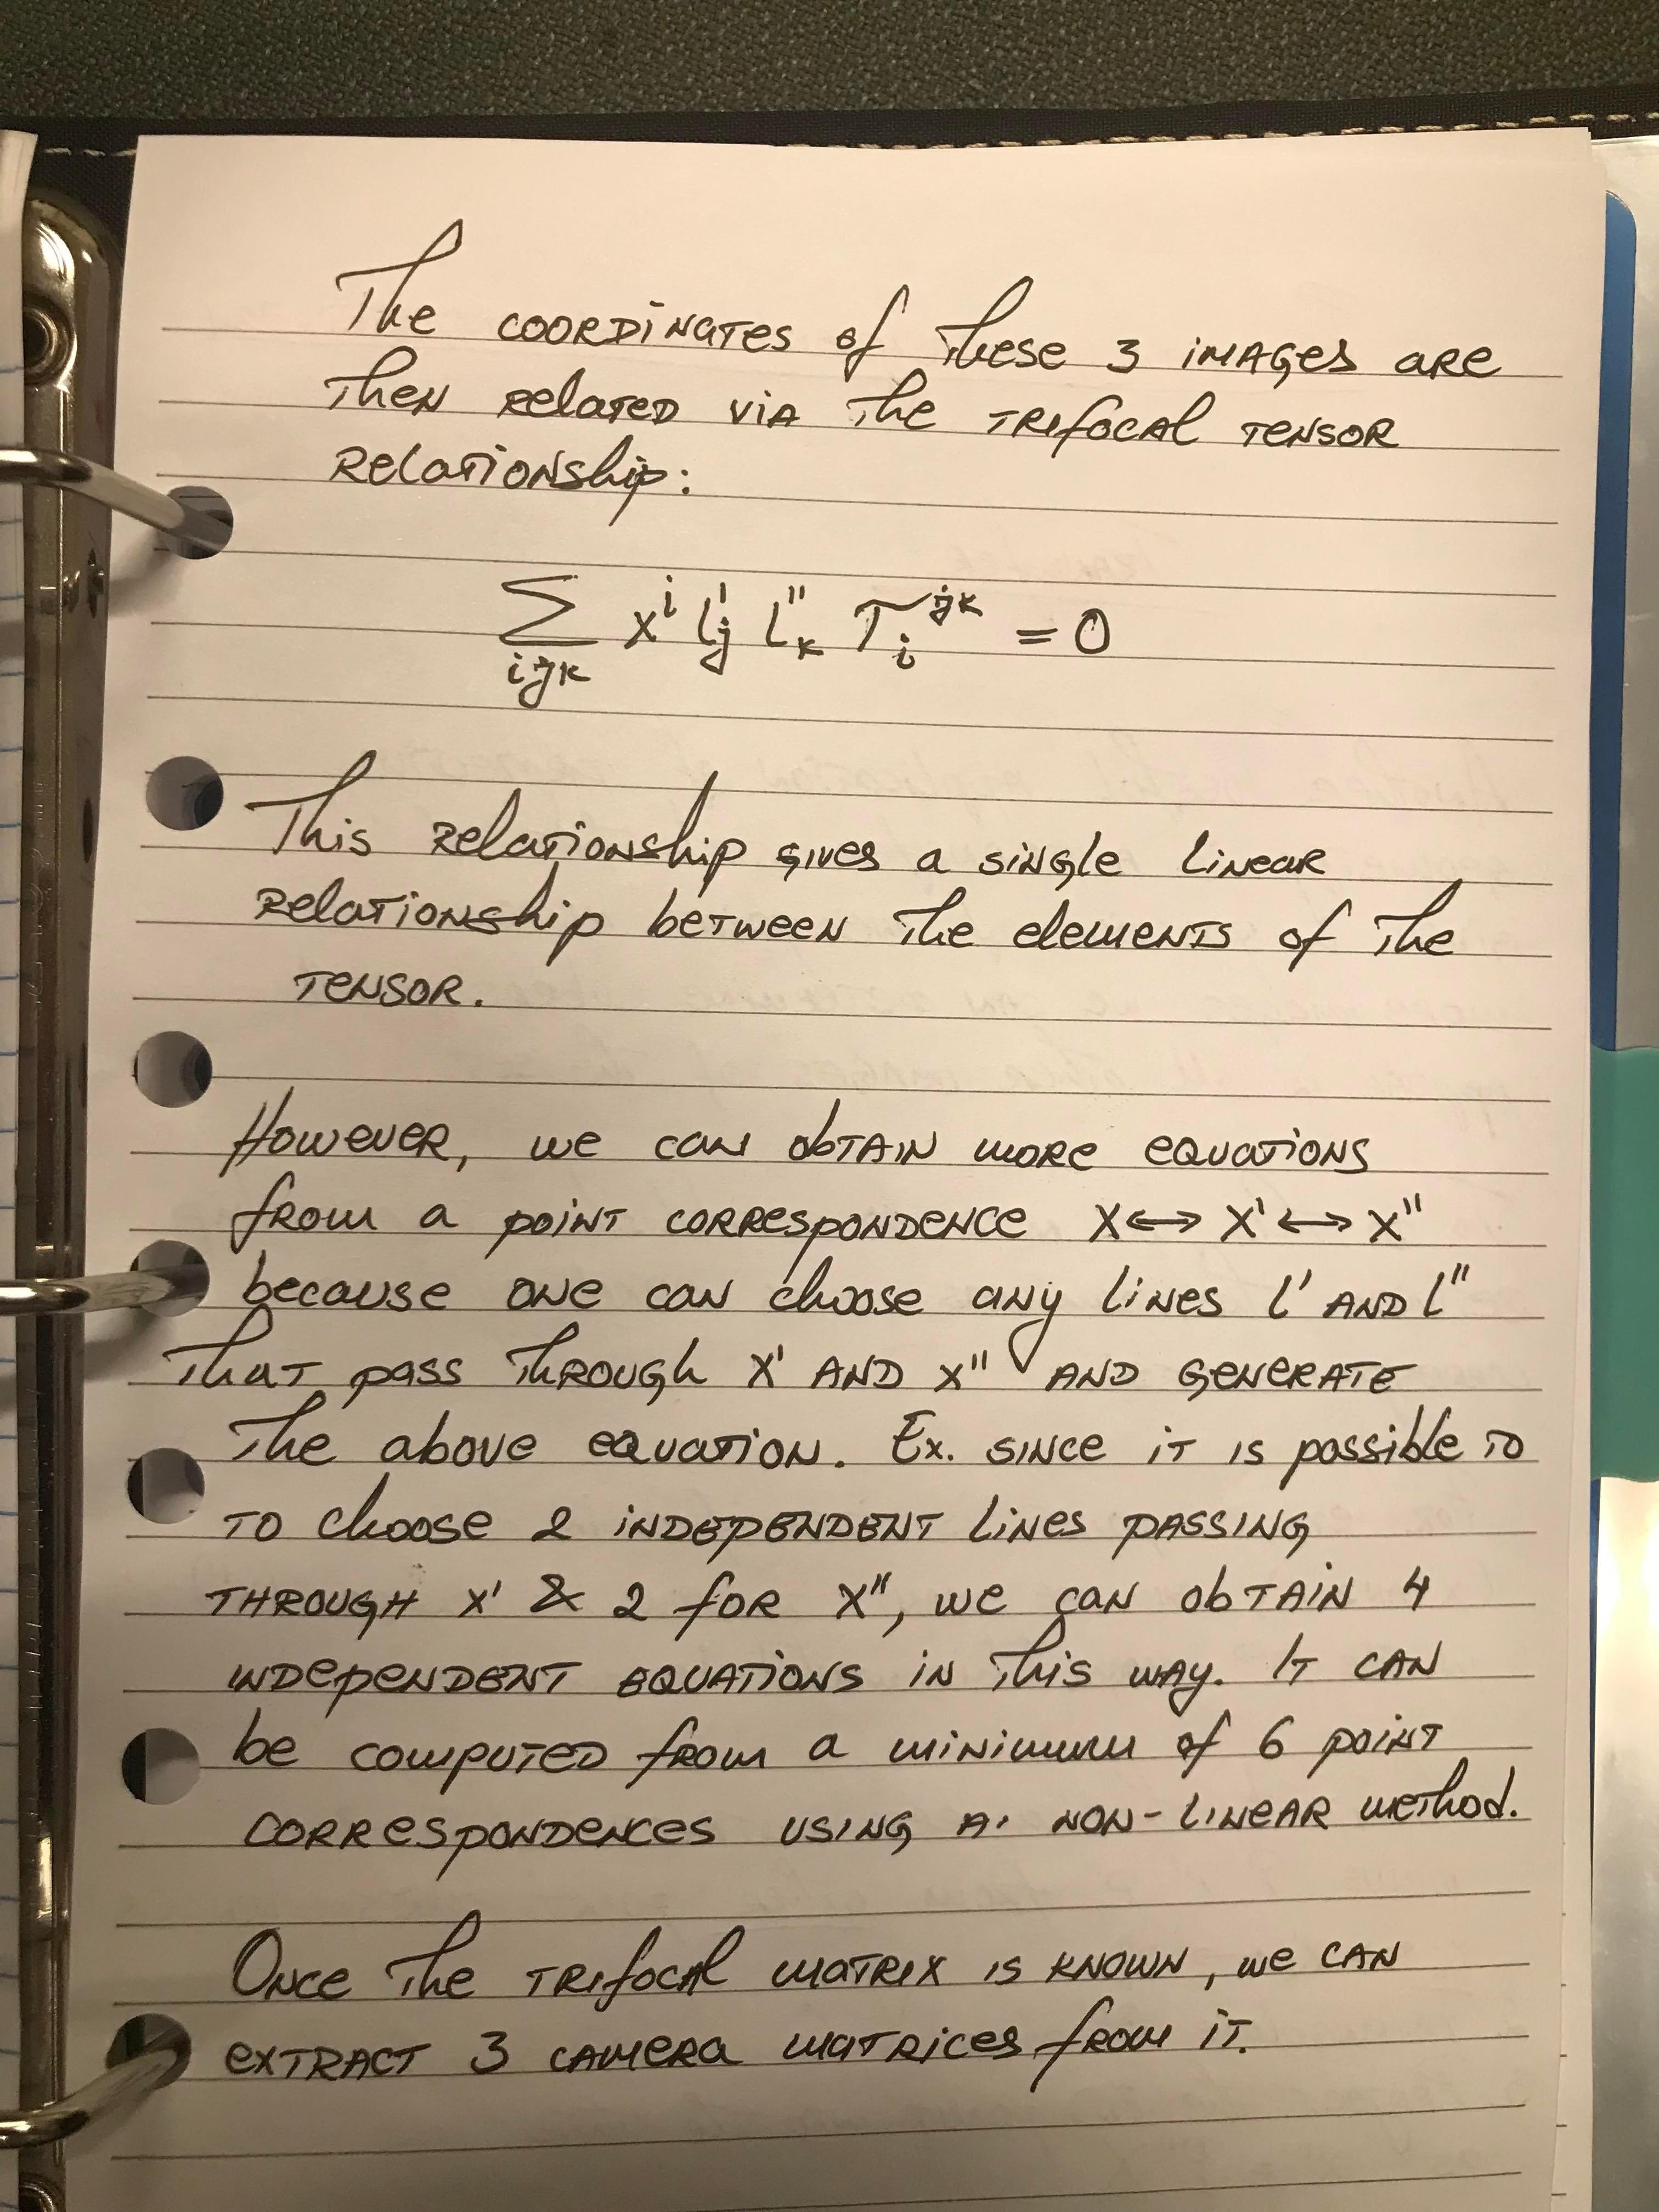 The coordinates of these 3 images are
then related via the trifocal tensor
relationship:
∑ xⁱ l'ⱼ l''ₖ Tᵢʲᵏ = 0
ijk
This relationship gives a single linear
relationship between the elements of the
tensor.
However, we can obtain more equations
from a point correspondence x↔x'↔x''
because one can choose any lines l' and l''
that pass through x' and x'' and generate
the above equation. Ex. since it is possible to
to choose 2 independent lines passing
through x' & 2 for x'', we can obtain 4
independent equations in this way. It can
be computed from a minimum of 6 point
correspondences using a non-linear method.
Once the trifocal matrix is known, we can
extract 3 camera matrices from it.